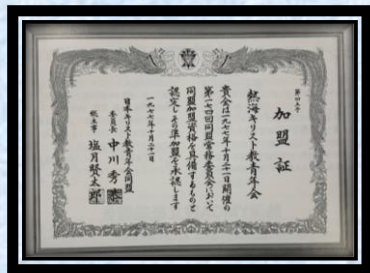 加盟証
熱海キリスト教青年会
貴会は一九七七年十月二十一日開催の
第一七四回同盟常務委員会において
同盟加盟資格を具備するものと
認定しその準加盟を承認します
一九七七年十月二十一日
日本キリスト教青年会同盟
委員長 中川秀
総主事 塩月賢太郎